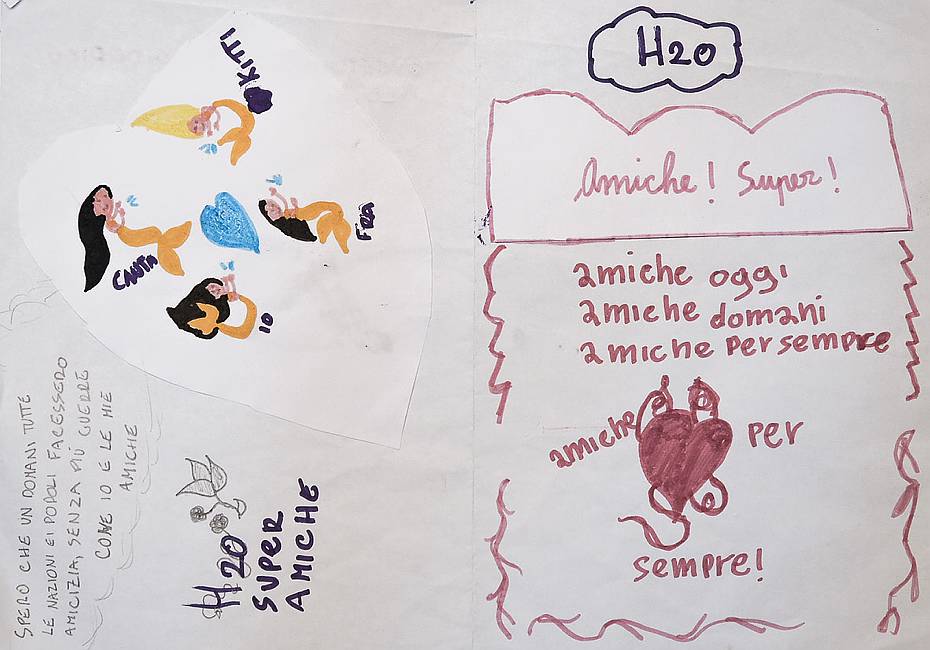 KITI
CAUTA
FRA
IO
SPERO CHE UN DOMANI TUTTE
LE NAZIONI E I POPOLI FACESSERO
AMICIZIA, SENZA PIÙ GUERRE
COME IO E LE MIE
AMICHE
H2O
SUPER
AMICHE
H2O
Amiche! Super!
amiche oggi
amiche domani
amiche per sempre
amiche per
sempre!